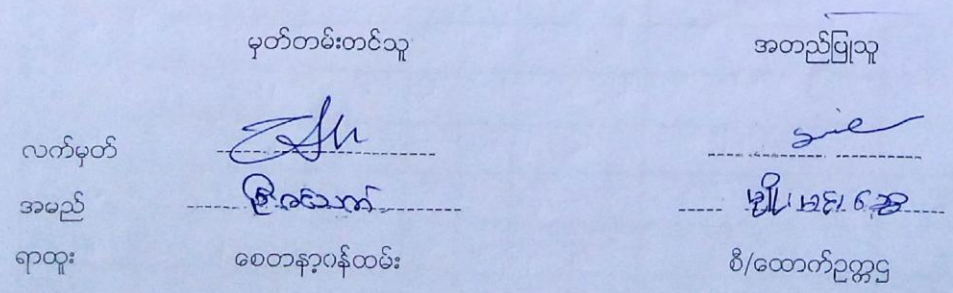 မှတ်တမ်းတင်သူ အတည်ပြုသူ
လက်မှတ်
အမည် မျိုးမင်းဆွေ
ရာထူး စေတနာ့ဝန်ထမ်း စီ/ထောက်ဥက္ကဋ္ဌ